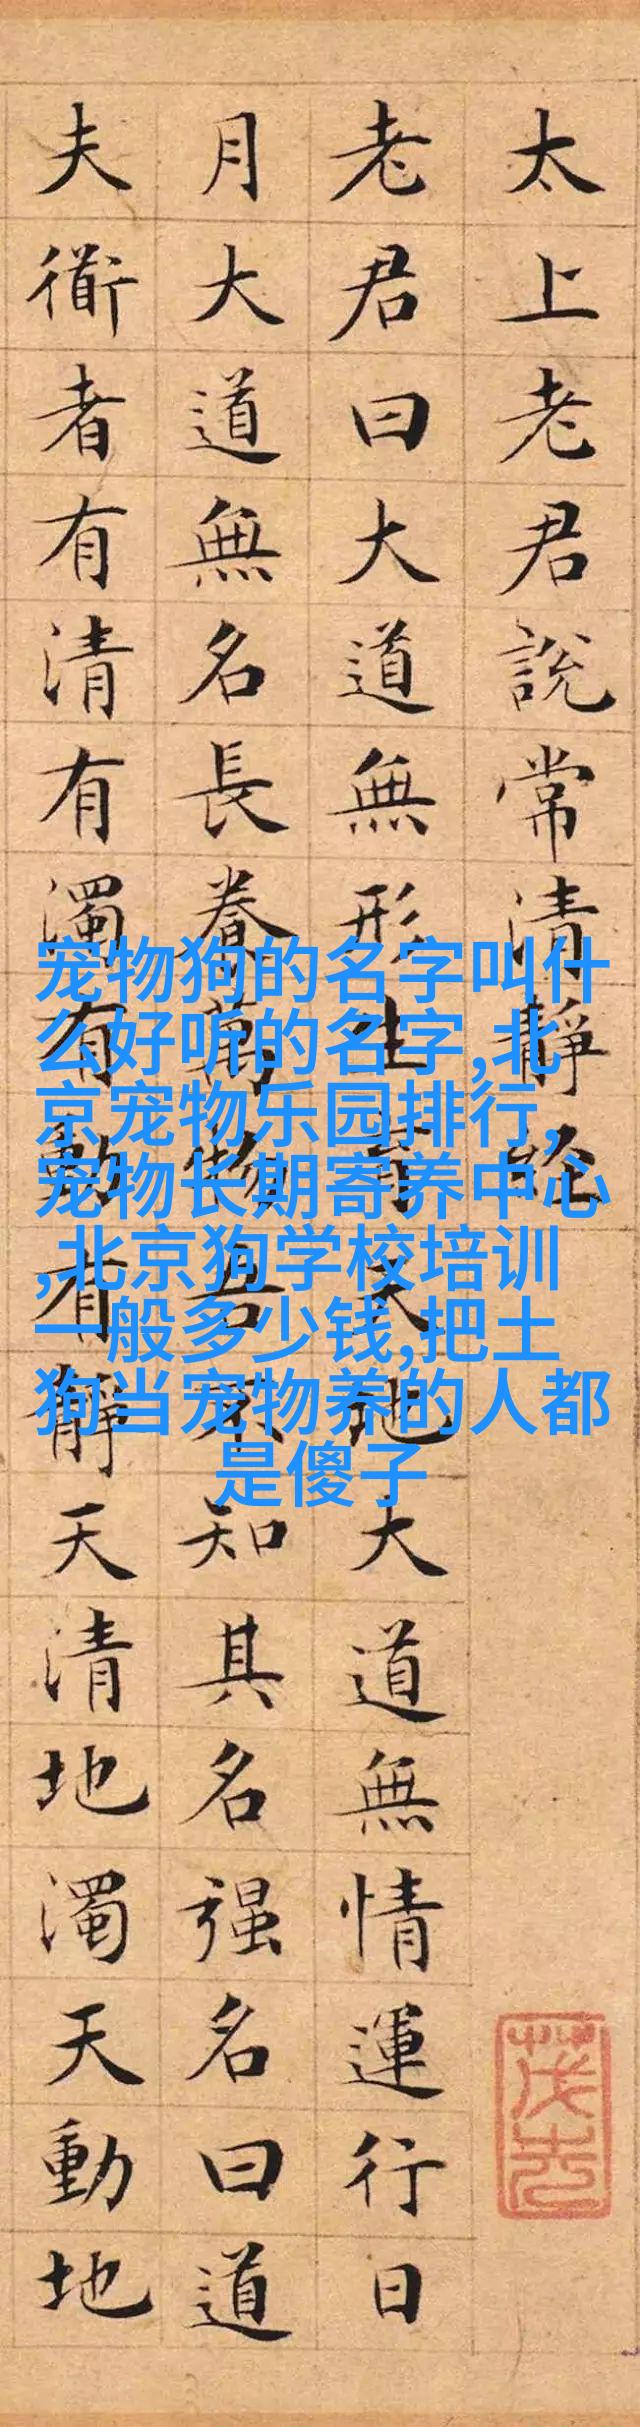 太上老君說常清靜經
老君曰大道無形生育天地大道無情運行日
月大道無名長養萬物吾不知其名强名曰道
夫衜者有清有濁有動有靜天清地濁天動地
宠物狗的名字叫什
么好听的名字,北
京宠物乐园排行,
宠物长期寄养中心
,北京狗学校培训
一般多少钱,把土
狗当宠物养的人都
是傻子